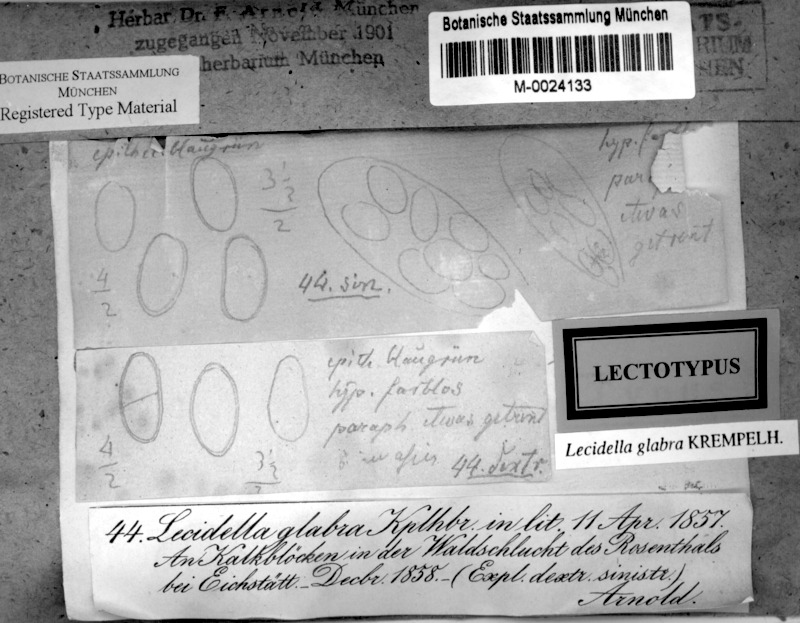 Herbar Dr. F. Arnold München
zugegangen November 1901
herbarium München
Botanische Staatssammlung München
M-0024133
BOTANISCHE STAATSSAMMLUNG
MÜNCHEN
Registered Type Material
blaugrün
3 1/2
2
4
2
44. sin.
hyp. farb
par
etwas
getrennt
epith. blaugrün
hyp. farblos
paraph etwas getrennt
44. dextr.
4
2
3 1/2
2
LECTOTYPUS
Lecidella glabra KREMPELH.
44. Lecidella glabra Kplhbr. in lit. 11 Apr. 1857.
An Kalkblöcken in der Waldschlucht des Rosenthals
bei Eichstätt. - Decbr. 1858. - (Expl. dextr. sinistr.)
Arnold.